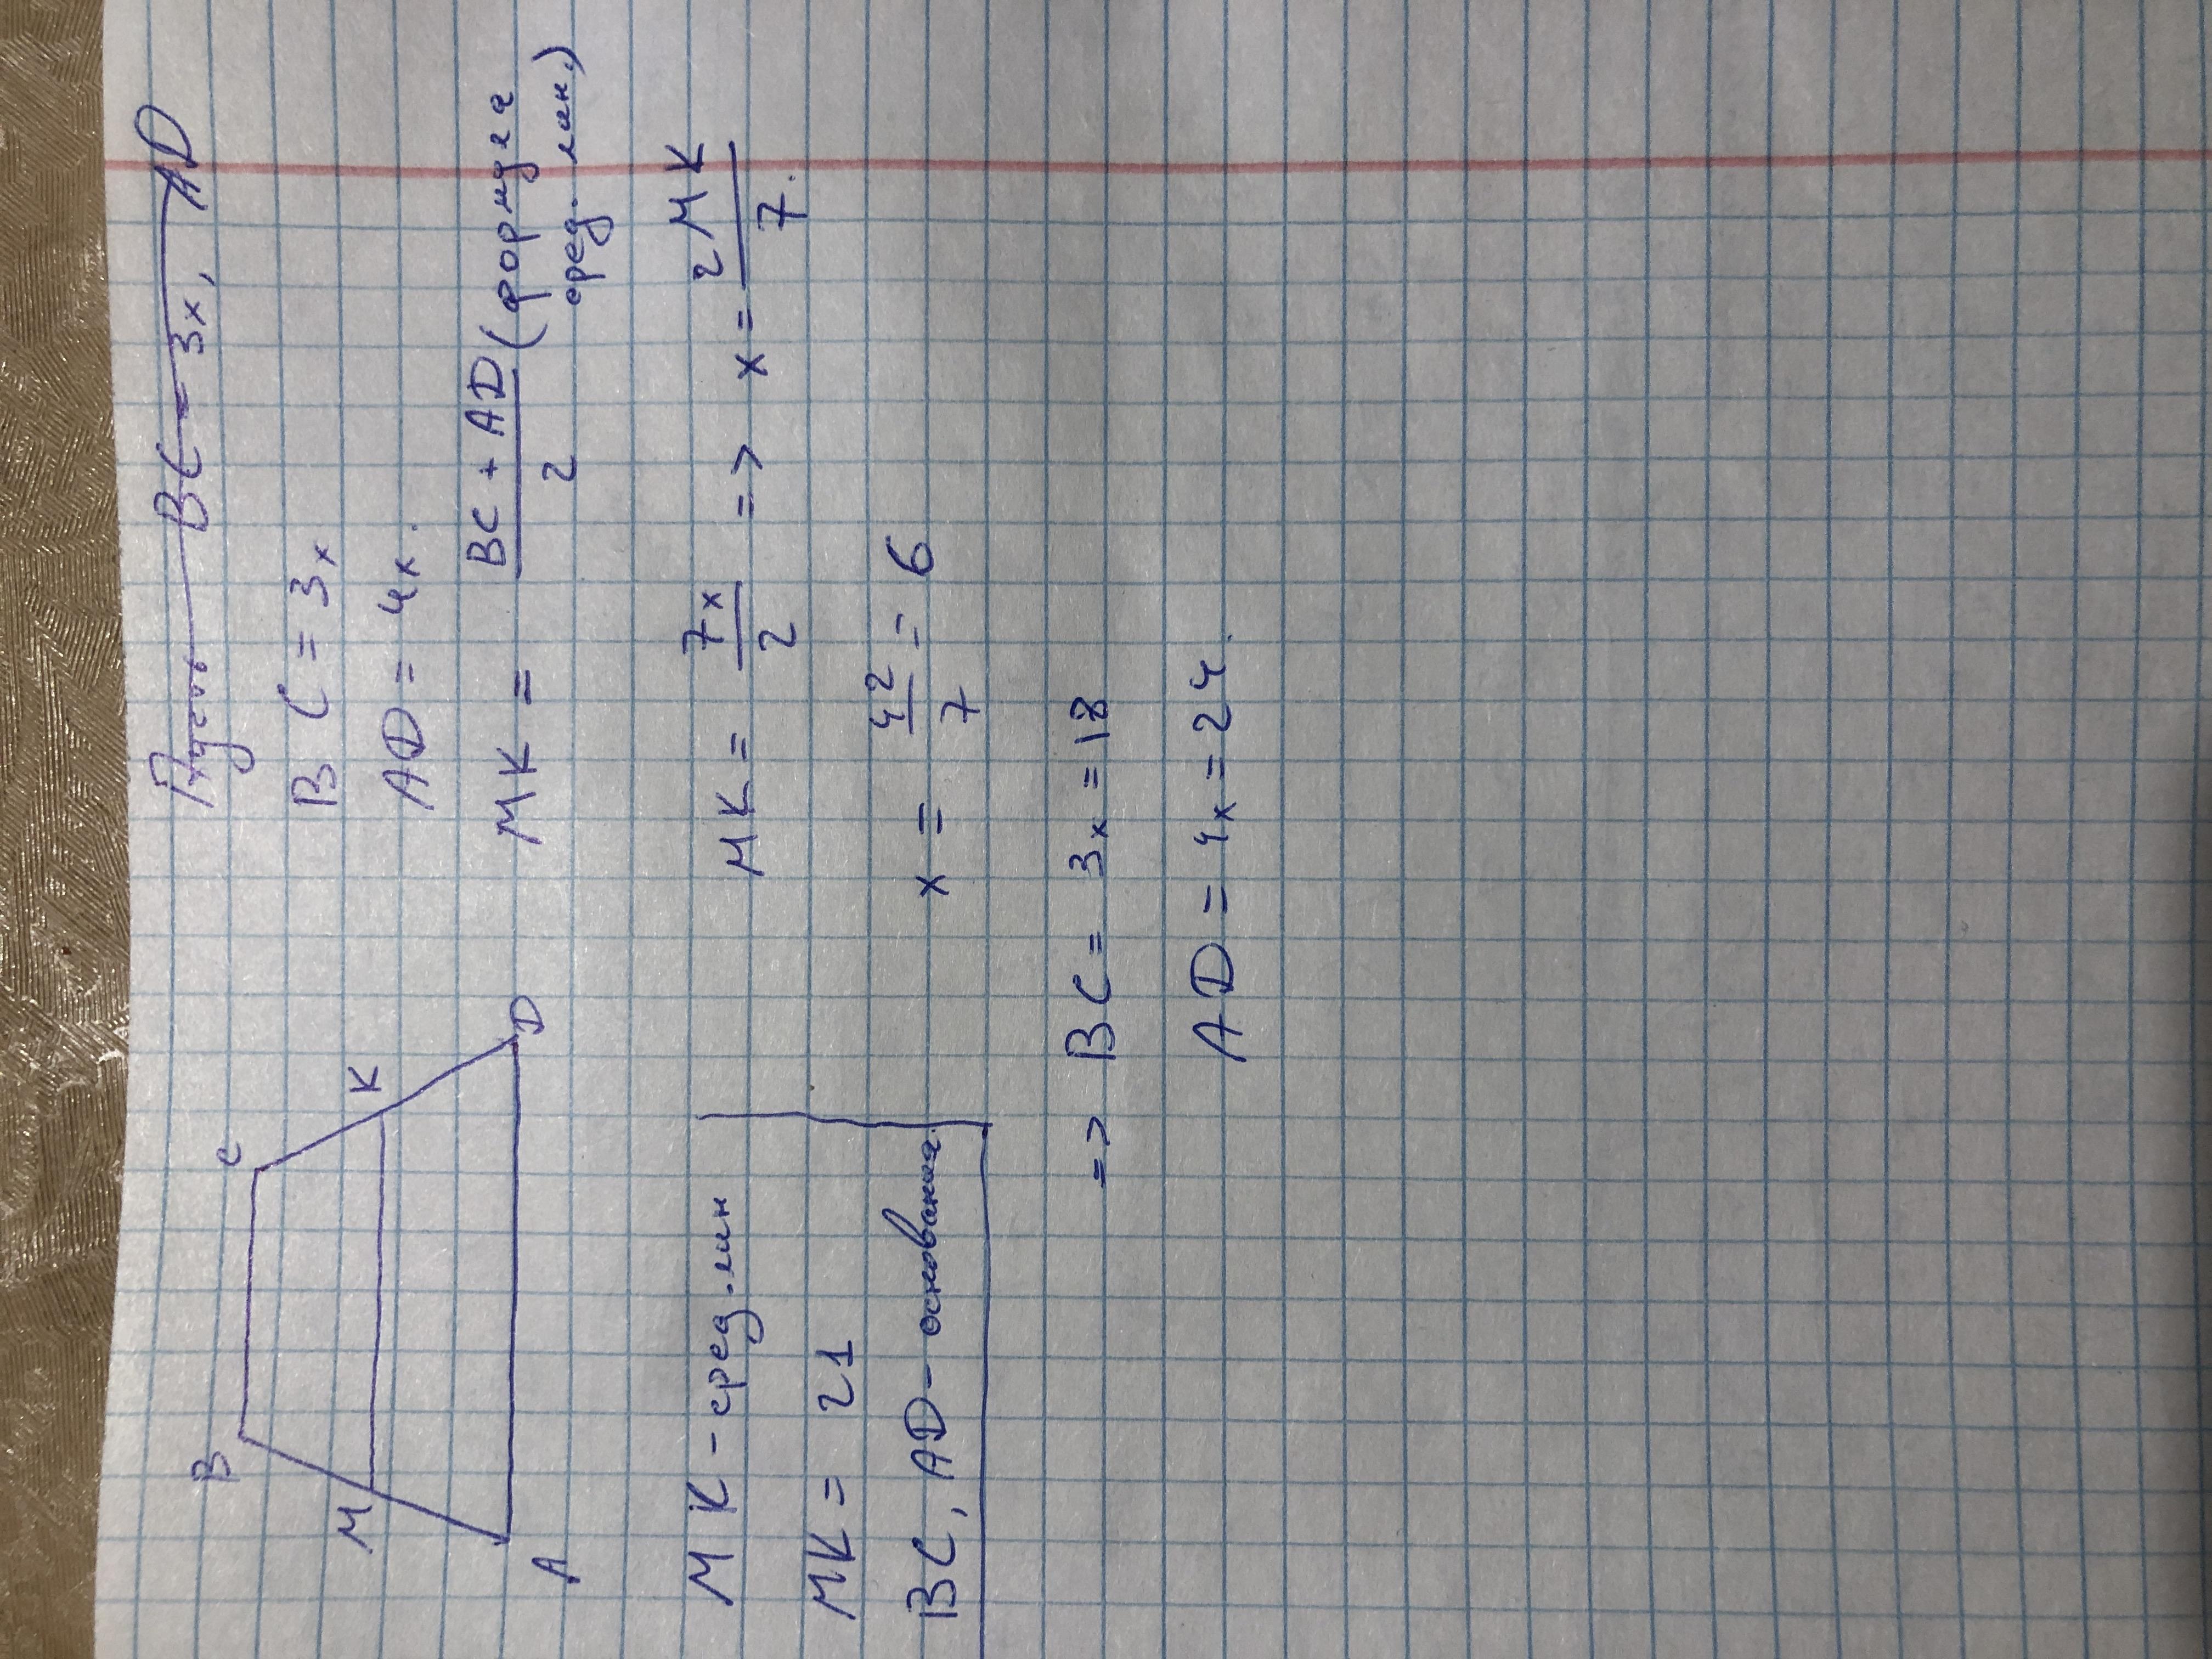 B
C
M
K
A
D
MK - сред. лин
MK = 21
BC, AD - основания.
Пусть BC = 3x, AD
BC = 3x
AD = 4x.
MK = BC + AD / 2 (формула
сред. лин.)
MK = 7x / 2 => x = 2MK / 7.
x = 42 / 7 = 6
=> BC = 3x = 18
AD = 4x = 24.